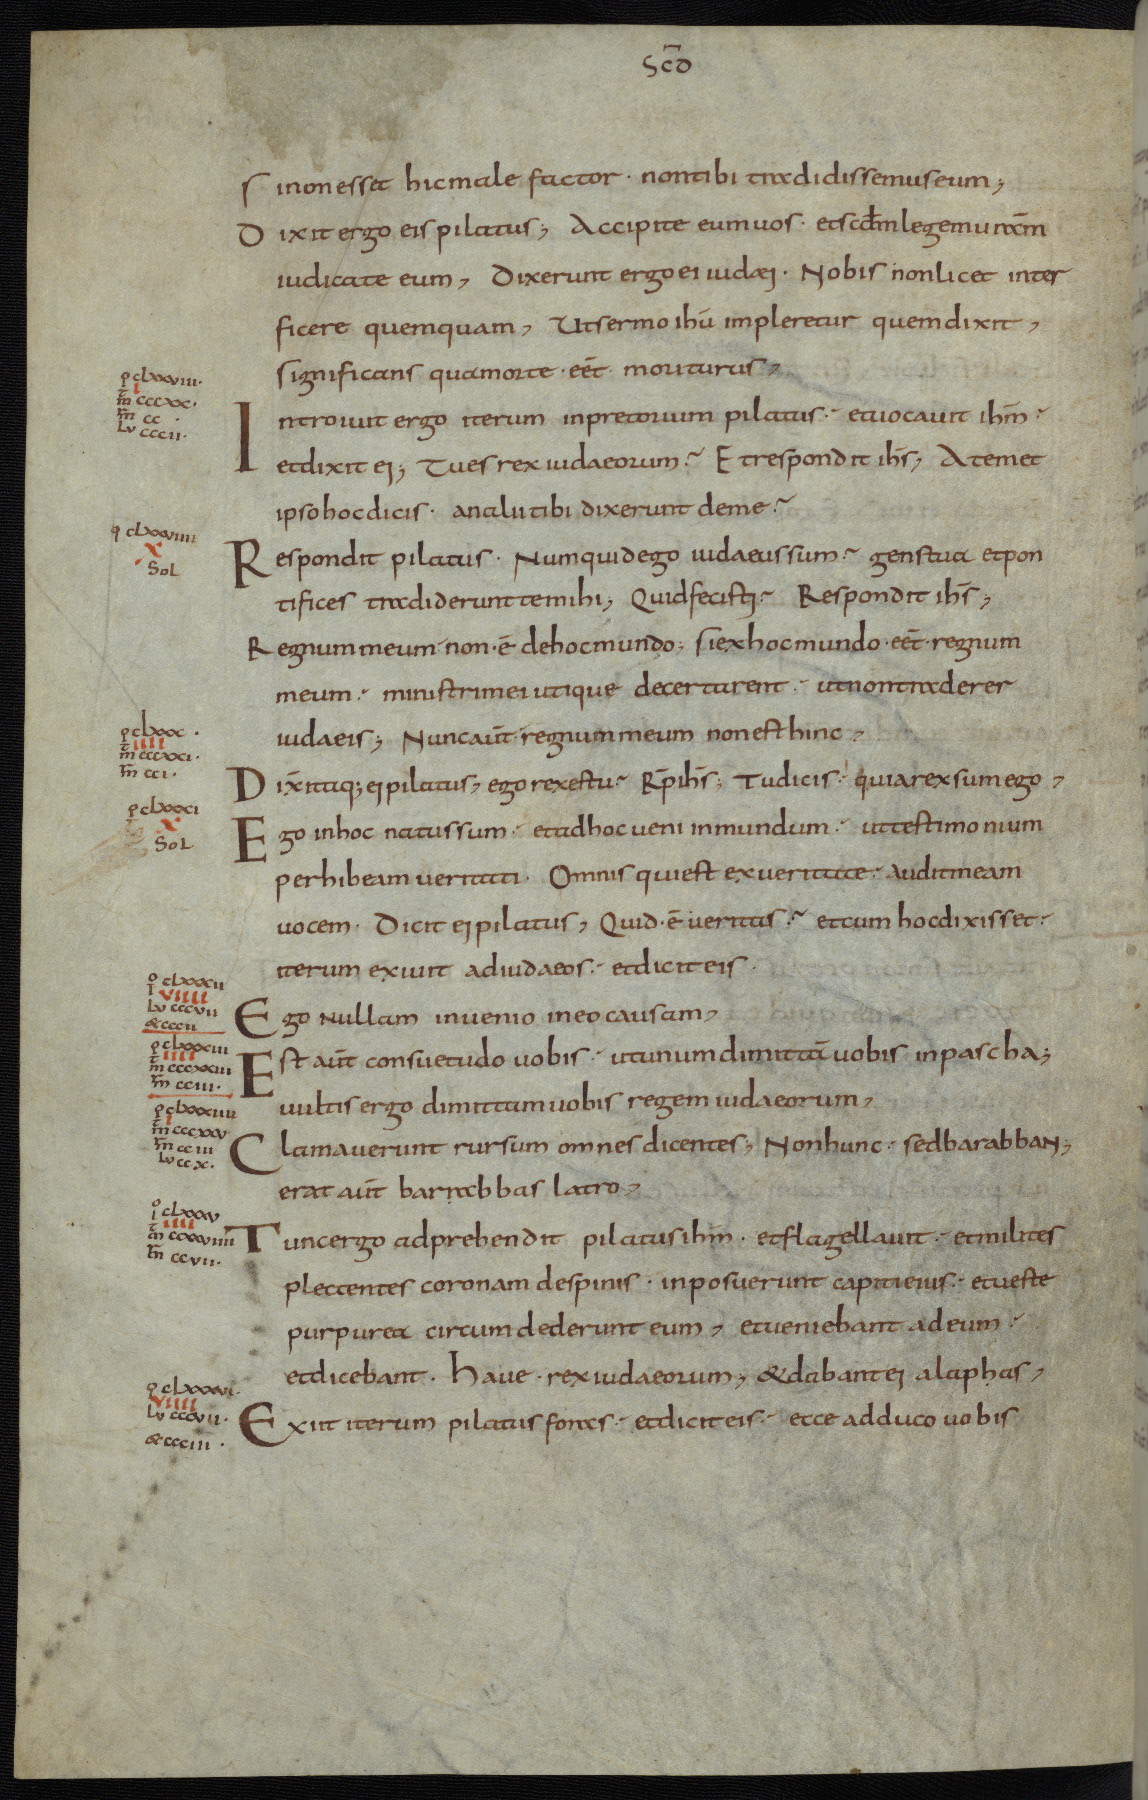 Scd̄
Sinon esset hic malefactor · non tibi tradidissemus eum;
Dixit ergo eis pilatus; Accipite eum uos · et scd̄m legem ur̄am
iudicate eum, Dixerunt ergo ei iudaei · Nobis non licet inter
ficere quemquam, Ut sermo ihū impleretur quem dixit,
significans qua morte · eēt · moriturus,
ꝑ clxxviii ·
i
m̄ cccxx ·
m̄ cc ·
Lv cccii ·
Introiuit ergo iterum in pretorium pilatus · et uocauit ihm̄ ·
et dixit ei; Tu es rex iudaeorum? Et respondit ihs̄; A temet
ipso hoc dicis · an alii tibi dixerunt de me?
ꝑ clxxviiii
x
SoL
Respondit pilatus · Numquid ego iudaeus sum? gens tua et pon
tifices tradiderunt te mihi; Quid fecisti? Respondit ihs̄;
Regnum meum non · ē de hoc mundo; si ex hoc mundo · eēt · regnum
meum · ministri mei utique decertarent · ut non traderer
ꝑ clxxx ·
iiii
m̄ cccxxi ·
m̄ cci ·
iudaeis; Nunc aūt regnum meum non est hinc,
Dix̄ itaq; ei pilatus, ego rex es tu? Rp̄ ihs̄; Tu dicis · quia rex sum ego,
ꝑ clxxxi
x
SoL
Ego in hoc natus sum · et ad hoc ueni in mundum · ut testimonium
perhibeam ueritati · Omnis qui est ex ueritate · Audit meam
uocem · Dicit ei pilatus, Quid · ē ueritas? et cum hoc dixisset ·
iterum exiuit ad iudaeos · et dicit eis ·
ꝑ clxxxii
viiii
Lv cccvii
& cccii
Ego Nullam inuenio in eo causam,
ꝑ clxxxiii
iiii
m̄ cccxxiii
m̄ cciii ·
Est aūt consuetudo uobis · ut unum dimittā uobis in pascha;
uultis ergo dimittam uobis regem iudaeorum,
ꝑ clxxxiiii
i
m̄ cccxxv
m̄ cciii
Lv ccx ·
Clamauerunt rursum omnes dicentes; Non hunc · sed barabbaN;
erat aūt barrabbas latro,
ꝑ clxxxv
iiii
m̄ ccxxviiii
m̄ ccvii ·
Tunc ergo adprehendit pilatus ihm̄ · et flagellauit · et milites
plectentes coronam de spinis · inposuerunt capiti eius · et ueste
purpurea circumdederunt eum, et ueniebant ad eum ·
et dicebant · haue · rex iudaeorum; & dabant ei alaphas,
ꝑ clxxxvi ·
viiii
Lv cccvii ·
& ccciii ·
Exiit iterum pilatus foras · et dicit eis · ecce adduco uobis